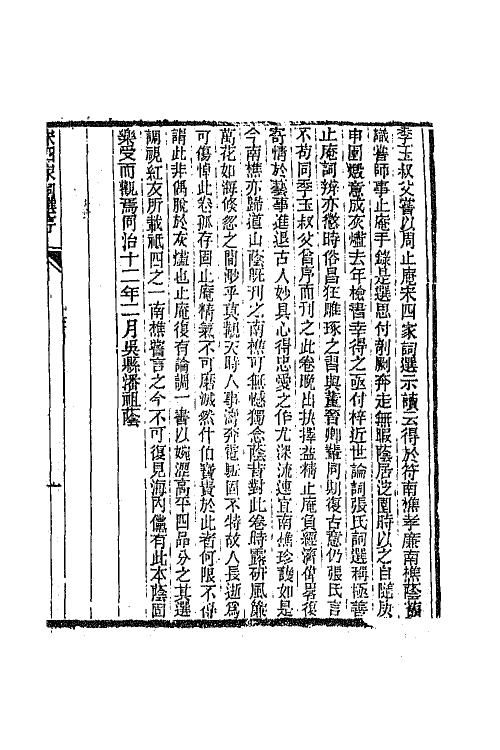 李玉叔父嘗以周止庵宋四家詞選示讀云得於符南樵孝廉南樵蔭
識嘗師事止庵手錄是選思付剞劂奔走無暇蔭居澄園時以之自隨庚
申園燬意成灰燼去年檢書幸得之亟付梓近世論詞張氏詞選稱極善
止庵詞辨亦懲時俗昌狂雕琢之習與董晉卿輩同期復古意仍張氏言
不苟同季玉叔父嘗序而刊之此卷晚出抉擇益精止庵負經濟偉畧復
寄情於藝事進退古人妙具心得忠愛之作尤深流連宜南樵珍護如是
今南樵亦歸道山蔭既刊之南樵可無憾獨念蔭昔對此卷時露研風簾
萬花如海倐忽之間邈乎莫覯天時人事濤奔電駈固不特故人長逝爲
可傷悼此卷孤存固止庵精氣不可磨滅然什伯寶貴於此者何限不得
謂此非偶脫於灰燼也止庵復有論調一書以婉澀高平四品分之其選
調視紅友所載祇四之一南樵嘗言之今不可復見海內儻有此本蔭固
樂受而觀焉同治十二年二月吳縣潘祖蔭
宋四家詞選序
一